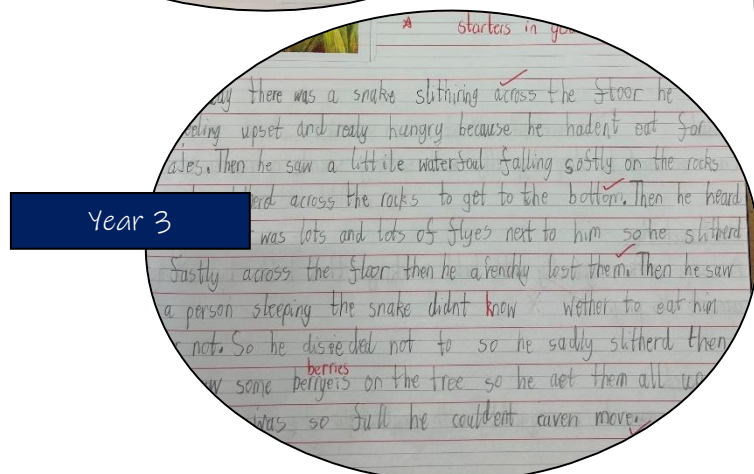 starters in
there was a snake slithiring across the floor he
upset and realy hungry because he hadent eat for
Then he saw a littile waterfoul falling softly on the rocks
across the rocks to get to the bottom. Then he heard
Year 3
was lots and lots of flyes next to him so he slitherd
fastly across the floor then he avenchly lost them. Then he saw
a person sleeping the snake didnt know wether to eat him
not. So he disieded not to so he sadly slitherd then
berries
some berryeis on the tree so he aet them all up
was so full he couldent eaven move.